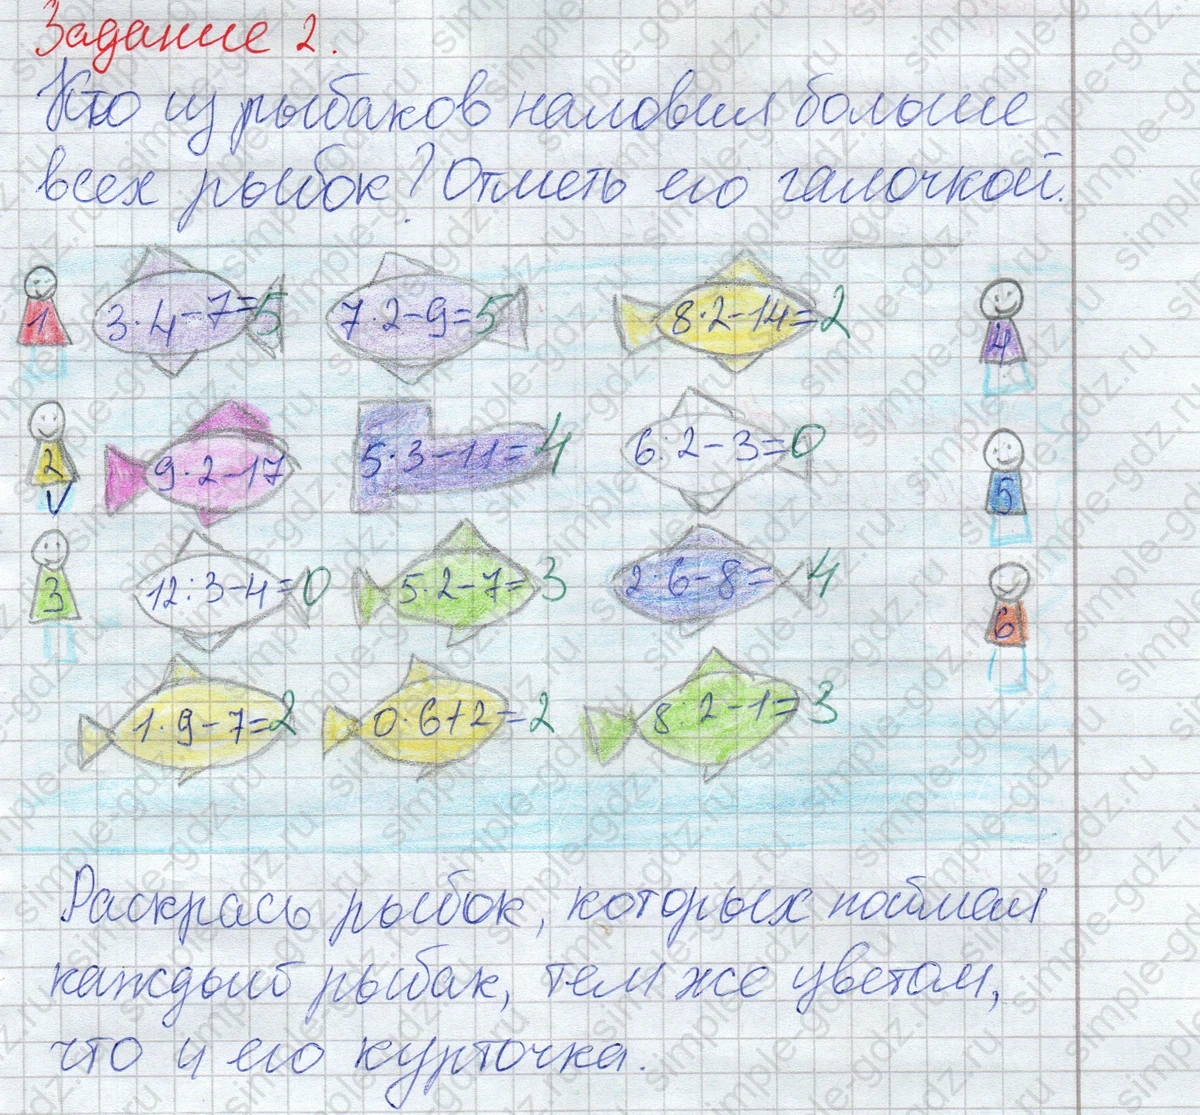 Задание 2.
Кто из рыбаков наловил больше
всех рыбок? Отметь его галочкой.
1 3·4-7=5 7·2-9=5 8·2-14=2 4
2 9·2-17 5·3-11=4 6:2-3=0 5
3 12:3-4=0 5·2-7=3 2·6-8=4 6
1·9-7=2 0·6+2=2 8 2-1=3
Раскрась рыбок, которых поймал
каждый рыбак, тем же цветом,
что и его курточка.
simple-gdz.ru